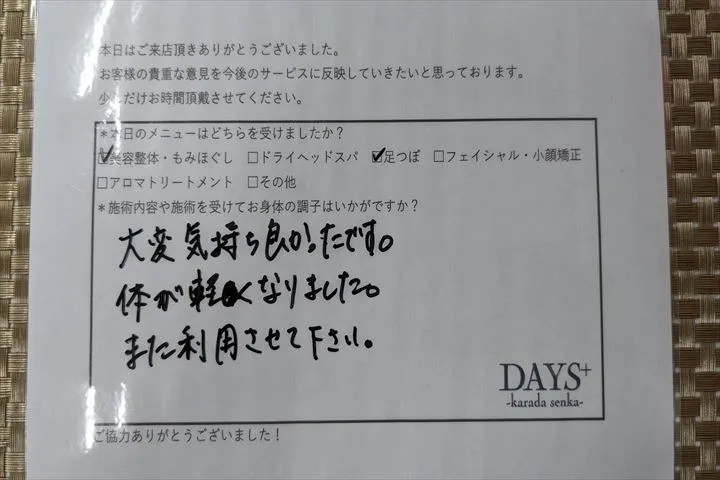 本日はご来店頂きありがとうございました。
お客様の貴重な意見を今後のサービスに反映していきたいと思っております。
少しだけお時間頂戴させてください。
*本日のメニューはどちらを受けましたか？
☑美容整体・もみほぐし □ドライヘッドスパ ☑足つぼ □フェイシャル・小顔矯正
□アロマトリートメント □その他
*施術内容や施術を受けてお身体の調子はいかがですか？
大変気持ち良かったです。
体が軽くなりました。
また利用させて下さい。
DAYS+
-karada senka-
ご協力ありがとうございました！